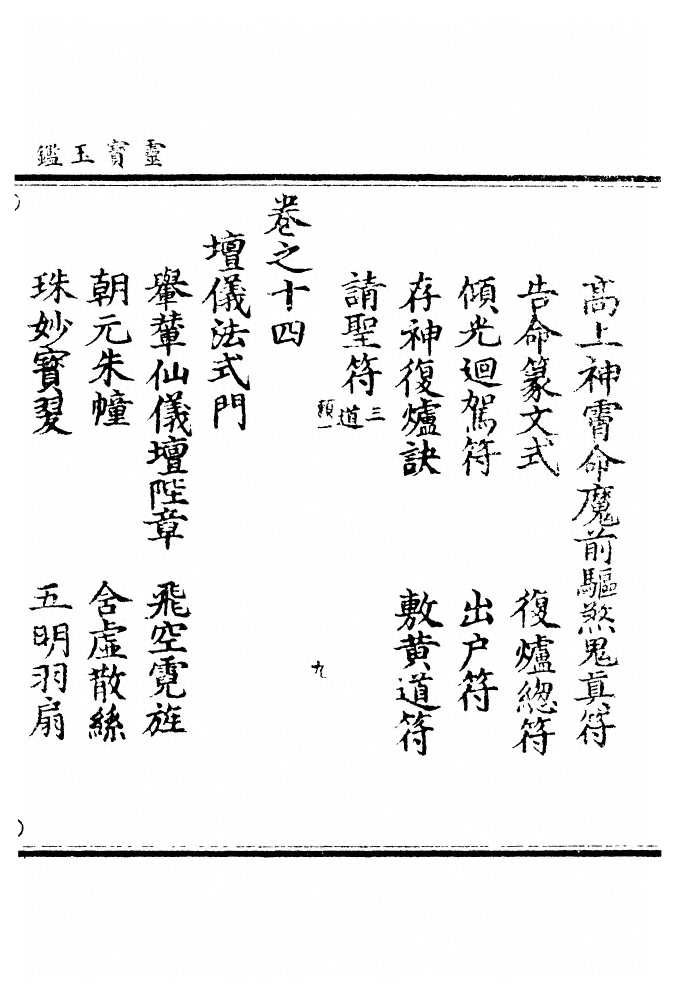 靈寶玉鑑
高上神霄命魔前驅煞鬼真符
告命篆文式　復爐總符
傾光迴駕符　出户符
存神復爐訣　敷黄道符
請聖符三道類一
九
卷之十四
壇儀法式門
轝輦仙儀壇陛章　飛空霓旌
朝元朱幢　含虛散絲
珠妙寶翣　五明羽扇